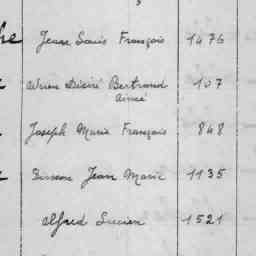 he Jean Louis François 1476
Désiré Bertrand 107
Aimé
Joseph Marie François 848
Jean Marie 1135
Alfred Lucien 1521